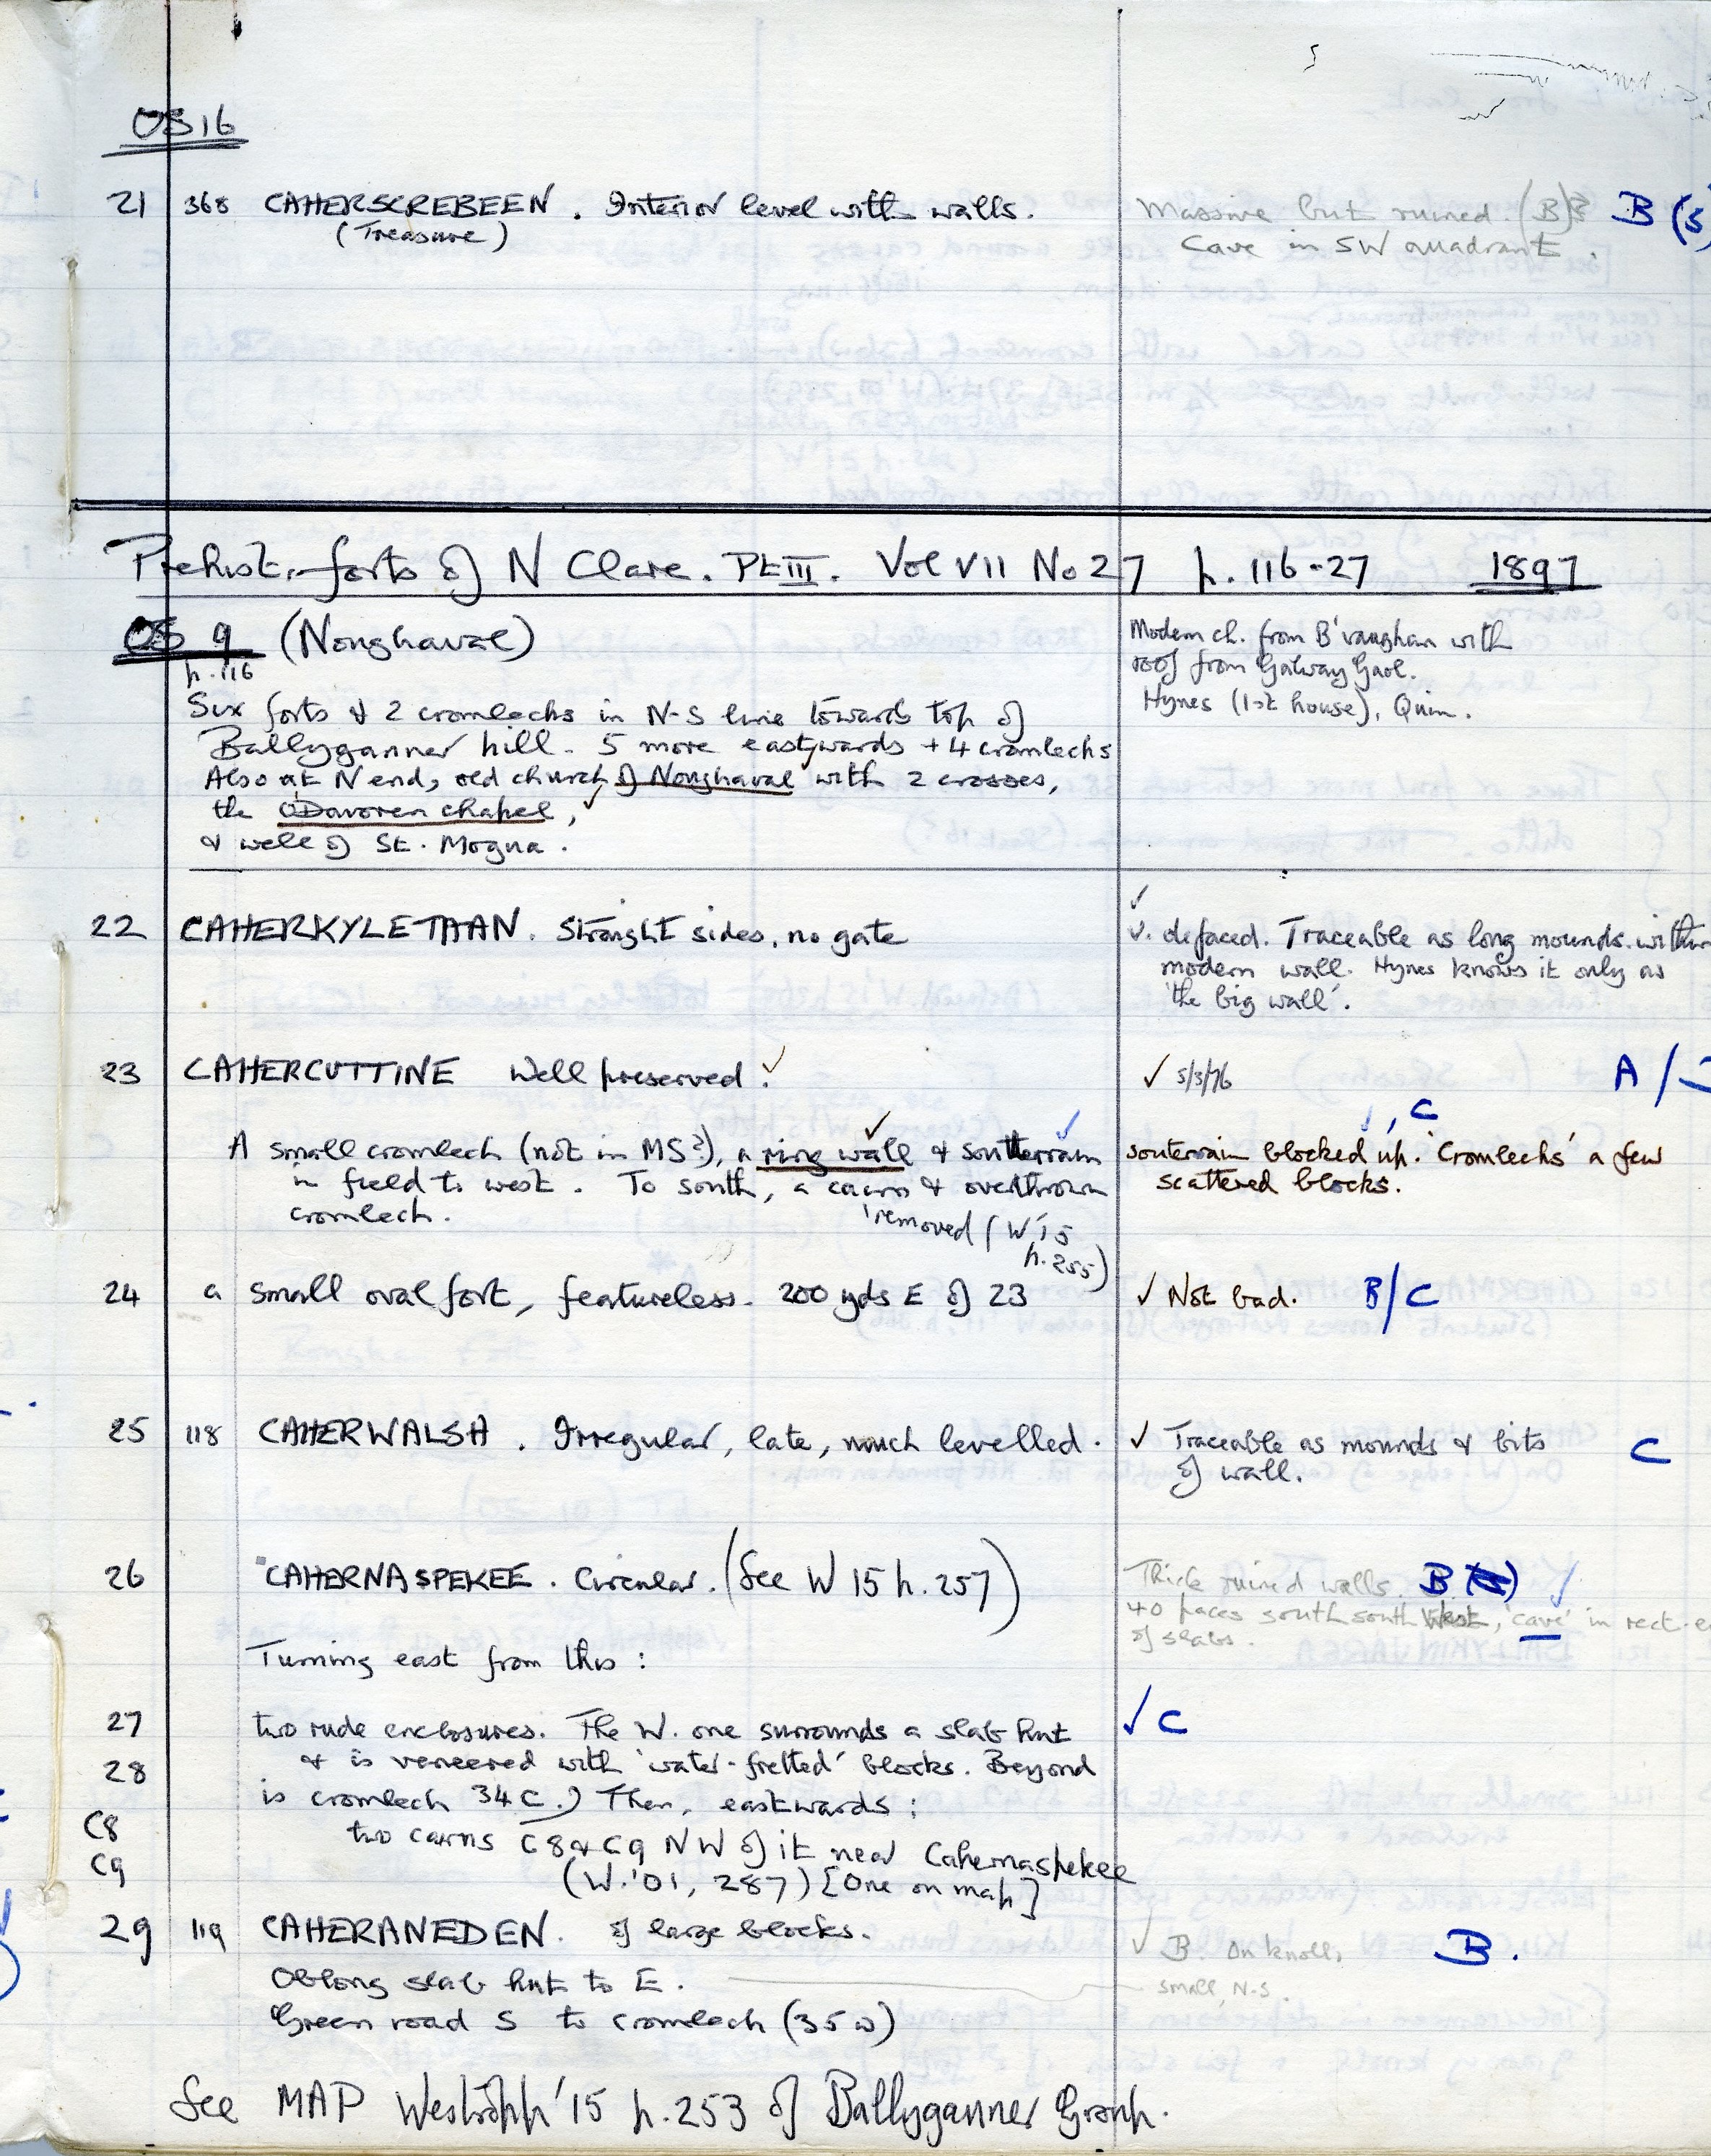 OS 16
21 368 CAHERSCREBEEN. Interior level with walls. Massive but ruined. (B) B (S)
(Treasure) Cave in SW quadrant.
Prehist. forts of N Clare. Pt III. Vol VII No 27 p. 116-27 1897
OS 9 (Noughaval)
p. 116
Modern ch. from B'vaughan with
roof from Galway Gaol.
Hynes (1st house), Quin.
Six forts & 2 cromlechs in N-S line towards top of
Ballyganner hill. 5 more eastwards + 4 cromlechs
Also at N end, old church of Noughaval with 2 crosses,
the O'Davoren chapel, ✓
& well of St. Mogua.
22 CAHERKYLETAAN. Straight sides, no gate
✓
v. defaced. Traceable as long mounds within
modern wall. Hynes knows it only as
'the big wall'.
23 CAHERCUTTINE Well preserved. ✓ ✓ 5/3/76 A/
A small cromlech (not in MS?), a ring wall & souterrain
in field to west. To south, a cairn & overthrown
cromlech. removed (W'15
p. 255)
✓, C
souterrain blocked up. 'Cromlechs' a few
scattered blocks.
24 a small oval fort, featureless. 200 yds E of 23 ✓ Not bad. B/C
25 118 CAHERWALSH. Irregular, late, much levelled. ✓ Traceable as mounds & bits C
of wall.
26 CAHERNASPEKEE. Circular. (See W 15 p. 257) Thick ruined walls. B (S) ✓
40 paces south south West, 'cave' in rect. e
of slabs.
Turning east from this:
27 two rude enclosures. The W. one surrounds a slab hut ✓ C
28 & is veneered with 'water-fretted' blocks. Beyond
is cromlech 34C.) Then, eastwards:
C8 two cairns C8 & C9 NW of it near Cahernaspekee
C9 (W.'01, 287) [One on map]
29 119 CAHERANEDEN. of large blocks. ✓ B. On knoll, B.
Oblong slab hut to E. small, N-S.
Green road S to cromlech (35 w)
See MAP Westropp '15 p. 253 of Ballyganner Group.